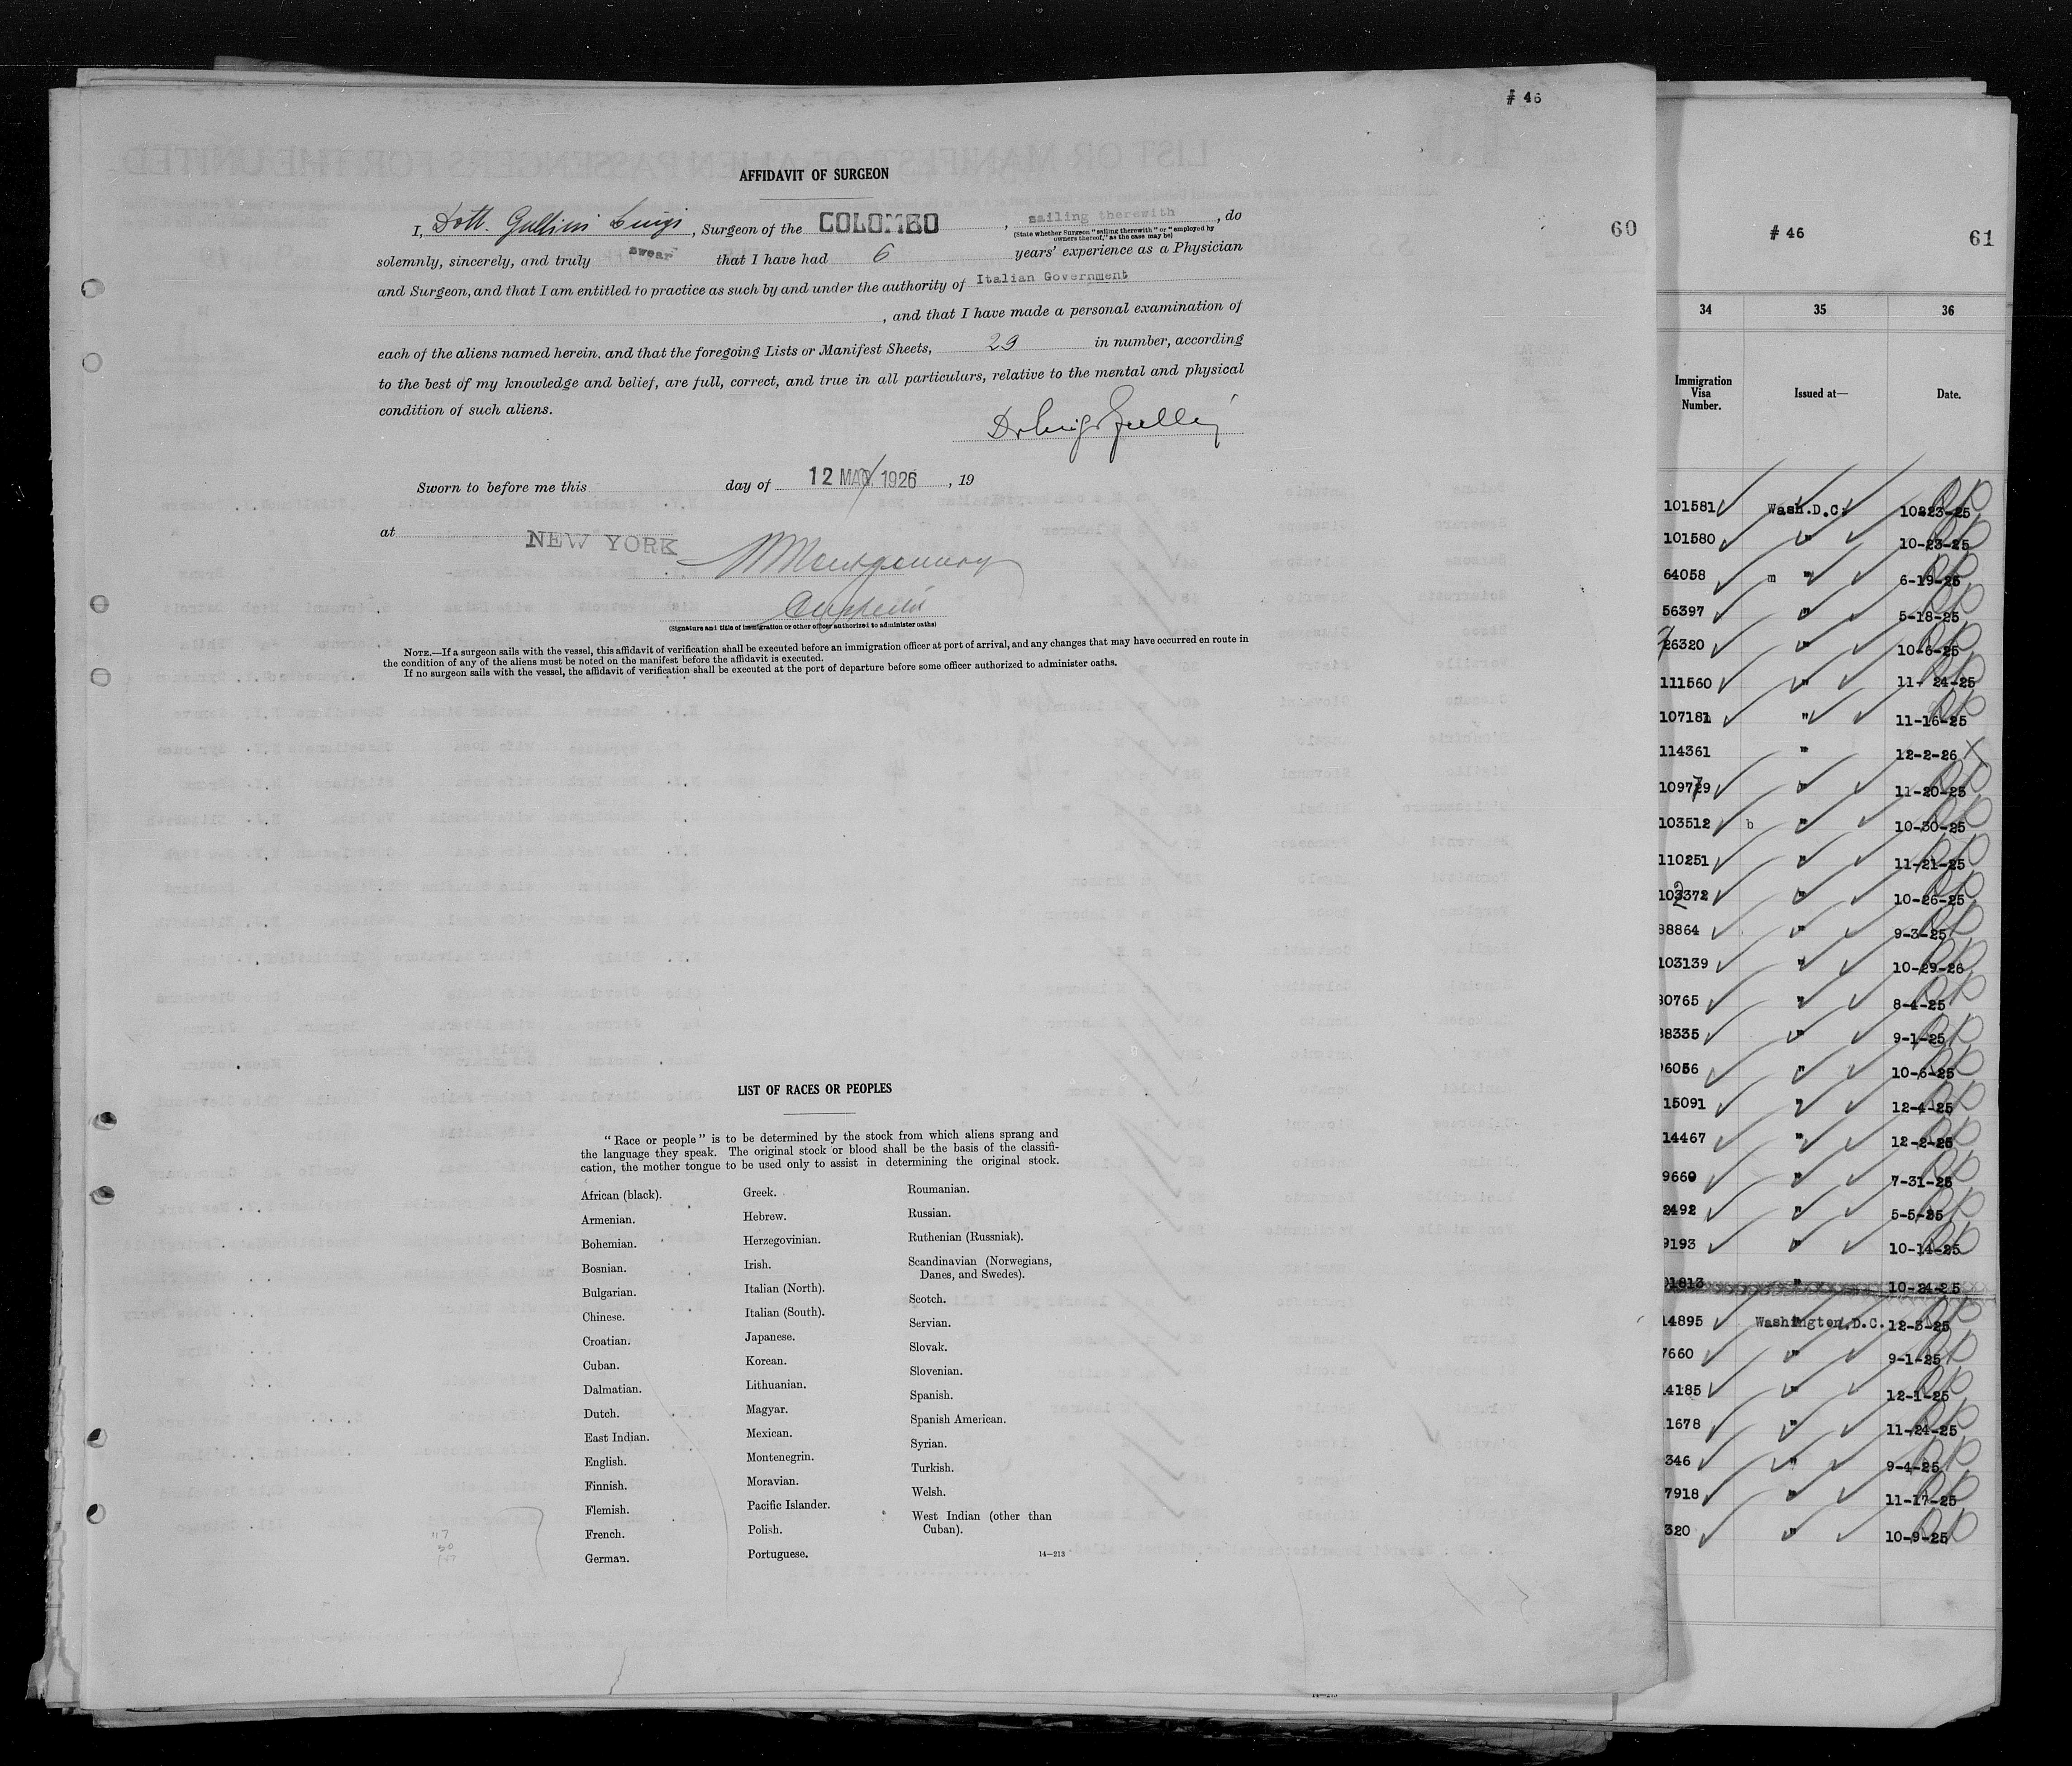 # 46
60
AFFIDAVIT OF SURGEON
I, Dott. Gullini Luigi, Surgeon of the COLOMBO, sailing therewith, do
(State whether Surgeon "sailing therewith" or "employed by
owners thereof," as the case may be)
solemnly, sincerely, and truly swear that I have had 6 years' experience as a Physician
and Surgeon, and that I am entitled to practice as such by and under the authority of Italian Government
, and that I have made a personal examination of
each of the aliens named herein, and that the foregoing Lists or Manifest Sheets, 29 in number, according
to the best of my knowledge and belief, are full, correct, and true in all particulars, relative to the mental and physical
condition of such aliens.
Sworn to before me this day of 12 MAR. 1926, 19
at NEW YORK
Montgomery
(Signature and title of immigration or other officer authorized to administer oaths)
NOTE.—If a surgeon sails with the vessel, this affidavit of verification shall be executed before an immigration officer at port of arrival, and any changes that may have occurred en route in
the condition of any of the aliens must be noted on the manifest before the affidavit is executed.
If no surgeon sails with the vessel, the affidavit of verification shall be executed at the port of departure before some officer authorized to administer oaths.
LIST OF RACES OR PEOPLES
"Race or people" is to be determined by the stock from which aliens sprang and
the language they speak. The original stock or blood shall be the basis of the classifi-
cation, the mother tongue to be used only to assist in determining the original stock.
African (black).
Armenian.
Bohemian.
Bosnian.
Bulgarian.
Chinese.
Croatian.
Cuban.
Dalmatian.
Dutch.
East Indian.
English.
Finnish.
Flemish.
French.
German.
Greek.
Hebrew.
Herzegovinian.
Irish.
Italian (North).
Italian (South).
Japanese.
Korean.
Lithuanian.
Magyar.
Mexican.
Montenegrin.
Moravian.
Pacific Islander.
Polish.
Portuguese.
Roumanian.
Russian.
Ruthenian (Russniak).
Scandinavian (Norwegians,
Danes, and Swedes).
Scotch.
Servian.
Slovak.
Slovenian.
Spanish.
Spanish American.
Syrian.
Turkish.
Welsh.
West Indian (other than
Cuban).
14—213
# 46
61
34 35 36
Immigration
Visa
Number.
Issued at—
Date.
101581 Wash.D.C. 10-23-25
101580 " 10-23-25
64058 m " 6-19-25
56397 " 5-18-25
26320 " 10-6-25
111560 " 11-24-25
107181 " 11-16-25
114361 " 12-2-26
109729 " 11-20-25
103512 b " 10-30-25
110251 " 11-21-25
103372 " 10-26-25
88864 " 9-3-25
103139 " 10-29-26
80765 " 8-4-25
88335 " 9-1-25
96056 " 10-6-25
15091 " 12-4-25
14467 " 12-2-25
9660 " 7-31-25
2492 " 5-5-25
9193 " 10-14-25
01813 " 10-24-25
14895 Washington,D.C. 12-3-25
7660 " 9-1-25
4185 " 12-1-25
1678 " 11-24-25
346 " 9-4-25
7918 " 11-17-25
320 " 10-9-25